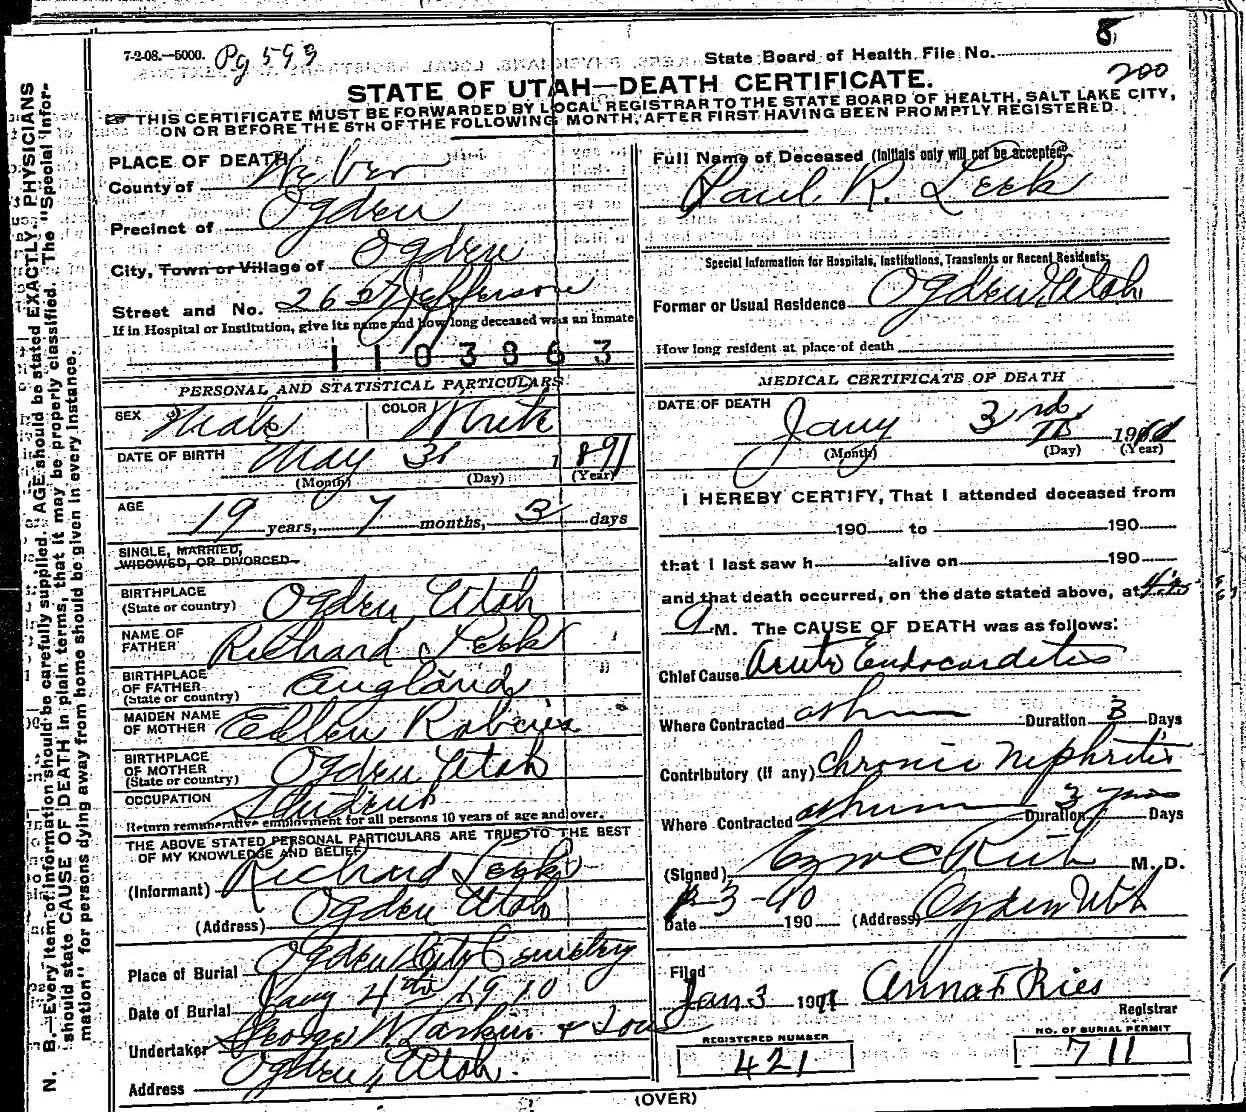 7-2-08.—5000. Pg 599
State Board of Health File No. 8
200
STATE OF UTAH—DEATH CERTIFICATE.
THIS CERTIFICATE MUST BE FORWARDED BY LOCAL REGISTRAR TO THE STATE BOARD OF HEALTH, SALT LAKE CITY,
ON OR BEFORE THE 5TH OF THE FOLLOWING MONTH, AFTER FIRST HAVING BEEN PROMPTLY REGISTERED.
N. B.—Every item of information should be carefully supplied. AGE should be stated EXACTLY. PHYSICIANS
should state CAUSE OF DEATH in plain terms, that it may be properly classified. The "Special Infor-
mation" for persons dying away from home should be given in every instance.
PLACE OF DEATH
County of Weber
Precinct of Ogden
City, Town or Village of Ogden
Street and No. 2627 Jefferson
If in Hospital or Institution, give its name and how long deceased was an inmate
1103863
PERSONAL AND STATISTICAL PARTICULARS
SEX Male COLOR White
DATE OF BIRTH May 31 1891
(Month) (Day) (Year)
AGE 19 years, 7 months, 3 days
SINGLE, MARRIED,
WIDOWED, OR DIVORCED
BIRTHPLACE
(State or country) Ogden Utah
NAME OF
FATHER Richard Leek
BIRTHPLACE
OF FATHER
(State or country) England
MAIDEN NAME
OF MOTHER Ellen
BIRTHPLACE
OF MOTHER
(State or country) Ogden Utah
OCCUPATION Student
Return remunerative employment for all persons 10 years of age and over.
THE ABOVE STATED PERSONAL PARTICULARS ARE TRUE TO THE BEST
OF MY KNOWLEDGE AND BELIEF
(Informant) Richard Leek
(Address) Ogden Utah
Place of Burial Ogden City Cemetery
Date of Burial Jany 4th 1910
Undertaker George W Larkin & Sons
Address Ogden, Utah.
Full Name of Deceased (Initials only will not be accepted)
Paul R. Leek
Special Information for Hospitals, Institutions, Transients or Recent Residents:
Former or Usual Residence Ogden Utah
How long resident at place of death
MEDICAL CERTIFICATE OF DEATH
DATE OF DEATH
Jany 3rd
(Month) (Day) (Year)
I HEREBY CERTIFY, That I attended deceased from
190 to 190
that I last saw h alive on 190
and that death occurred, on the date stated above, at
M. The CAUSE OF DEATH was as follows:
Chief Cause Acute Endocarditis
Where Contracted at home Duration 3 Days
Contributory (if any) Chronic Nephritis
Where Contracted at home Duration 3 years Days
(Signed) M. D.
Date 190 (Address) Ogden Utah
Filed
Jan 3 Anna F Ries
Registrar
REGISTERED NUMBER
421
NO. OF BURIAL PERMIT
711
(OVER)